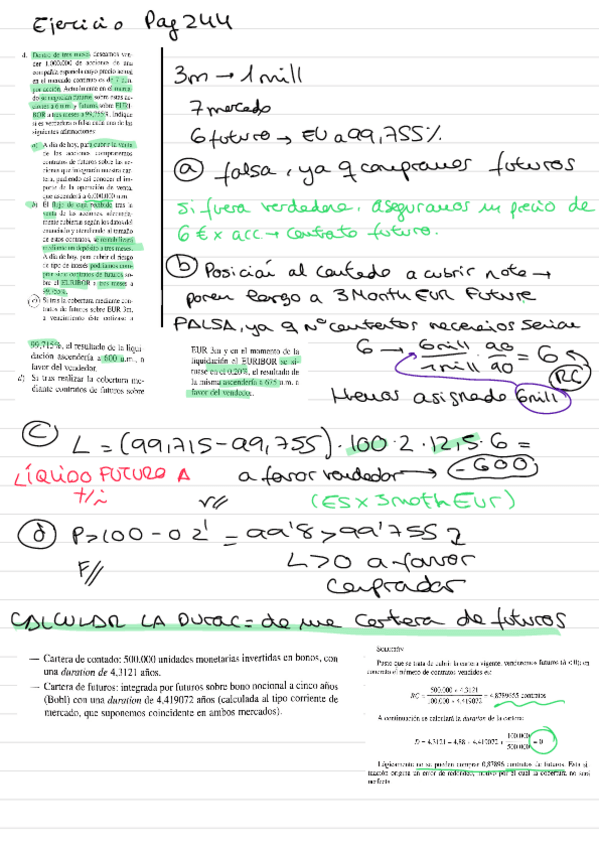 Ejercicio Pag 244
d. Dentro de tres meses, deseamos ven-
der 1.000.000 de acciones de una
compañía española cuyo precio actual
en el mercado continuo es de 7 euros
por acción. Actualmente en el merca-
do se negocian futuros sobre estas ac-
ciones a 6 u.m. y futuros sobre EURI-
BOR a tres meses a 99,755%. Indique
si es verdadera o falsa cada una de las
siguientes afirmaciones:
a) A día de hoy, para cubrir la venta
de las acciones compraremos
contratos de futuros sobre las ac-
ciones que integrarán nuestra car-
tera, pudiendo así conocer el im-
porte de la operación de venta,
que ascenderá a 6.000.000 u.m.
b) El flujo de caja recibido tras la
venta de las acciones,
cubiertas según los datos del
enunciado y atendiendo al tamaño
de estos contratos, se
mediante un depósito a tres meses.
A día de hoy, para cubrir el riesgo
de tipo de interés podríamos com-
prar contratos de futuros so-
bre el EURIBOR a tres meses a
99,755%.
c) Si tras la cobertura mediante con-
tratos de futuros sobre EUR 3m,
a vencimiento éste cotizase a
99,715%, el resultado de la liqui-
dación ascendería a 600 u.m., a
favor del vendedor.
d) Si tras realizar la cobertura me-
diante contratos de futuros sobre
EUR 3m y en el momento de la
liquidación el EURIBOR se si-
tuase en el 0,20%, el resultado de
la misma ascendería a 675 u.m. a
favor del vendedor.
3m → 1 mill
7 mercado
6 futuro → EU a 99,755%
a) falsa, ya q compramos futuros
Si fuera verdadera, aseguramos un precio de
6 € x acc → contrato futuro.
b) Posición al contado a cubrir nota →
poren largo a 3 Month EUR Future
FALSA, ya q Nº contratos necesarios serían
6 → 6 mill / 1 mill · 90 / 90 = 6
RC
Hemos asignado 6 mill
c) L = (99,715 - 99,755) · 100 · 2 · 12,5 · 6 =
LÍQUIDO FUTURO A
a favor vendedor → -600
t/i
V//
(ES x 3 moth EUR)
d) P > 100 - 0'2 = 99'8 > 99'755
F//
L > 0 a favor
comprador
CALCULAR LA DURAC = de una cartera de futuros
— Cartera de contado: 500.000 unidades monetarias invertidas en bonos, con
una duration de 4,3121 años.
— Cartera de futuros: integrada por futuros sobre bono nocional a cinco años
(Bobl) con una duration de 4,419072 años (calculada al tipo corriente de
mercado, que suponemos coincidente en ambos mercados).
SOLUCIÓN
Puesto que se trata de cubrir la cartera vigente, venderemos futuros (h < 0); en
concreto el número de contratos vendidos es:
RC = 500.000 × 4,3121 / 100.000 × 4,419072 = 4,8789655 contratos
A continuación se calculará la duration de la cartera:
D = 4,3121 - 4,88 × 4,419072 × 100.000 / 500.000 = 0
Lógicamente no se pueden comprar 0,87896 contratos de futuros. Esta si-
tuación origina un error de redondeo, motivo por el cual la cobertura no será
perfecta.